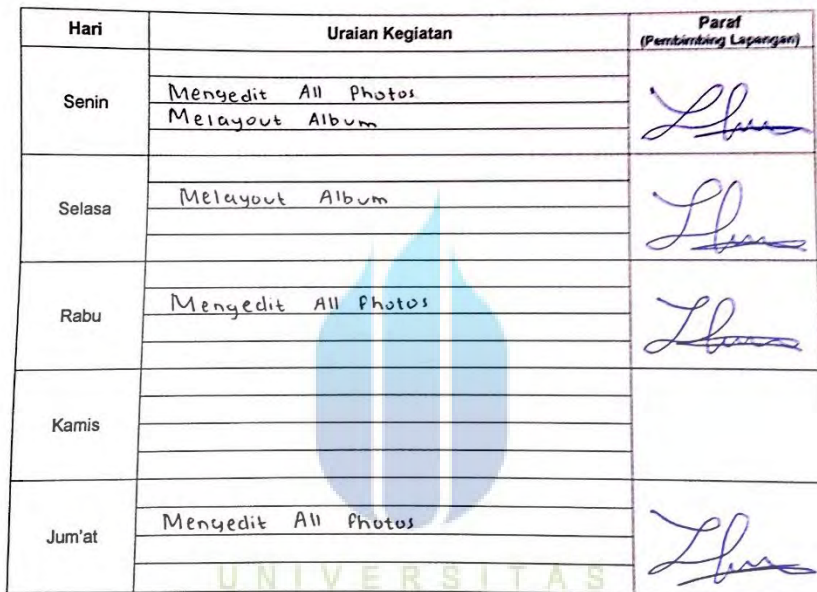 Hari Uraian Kegiatan Paraf
(Pembimbing Lapangan)
Senin
Mengedit All Photos
Melayout Album
Selasa
Melayout Album
Rabu
Mengedit All Photos
Kamis
Jum'at
Mengedit All Photos
UNIVERSITAS